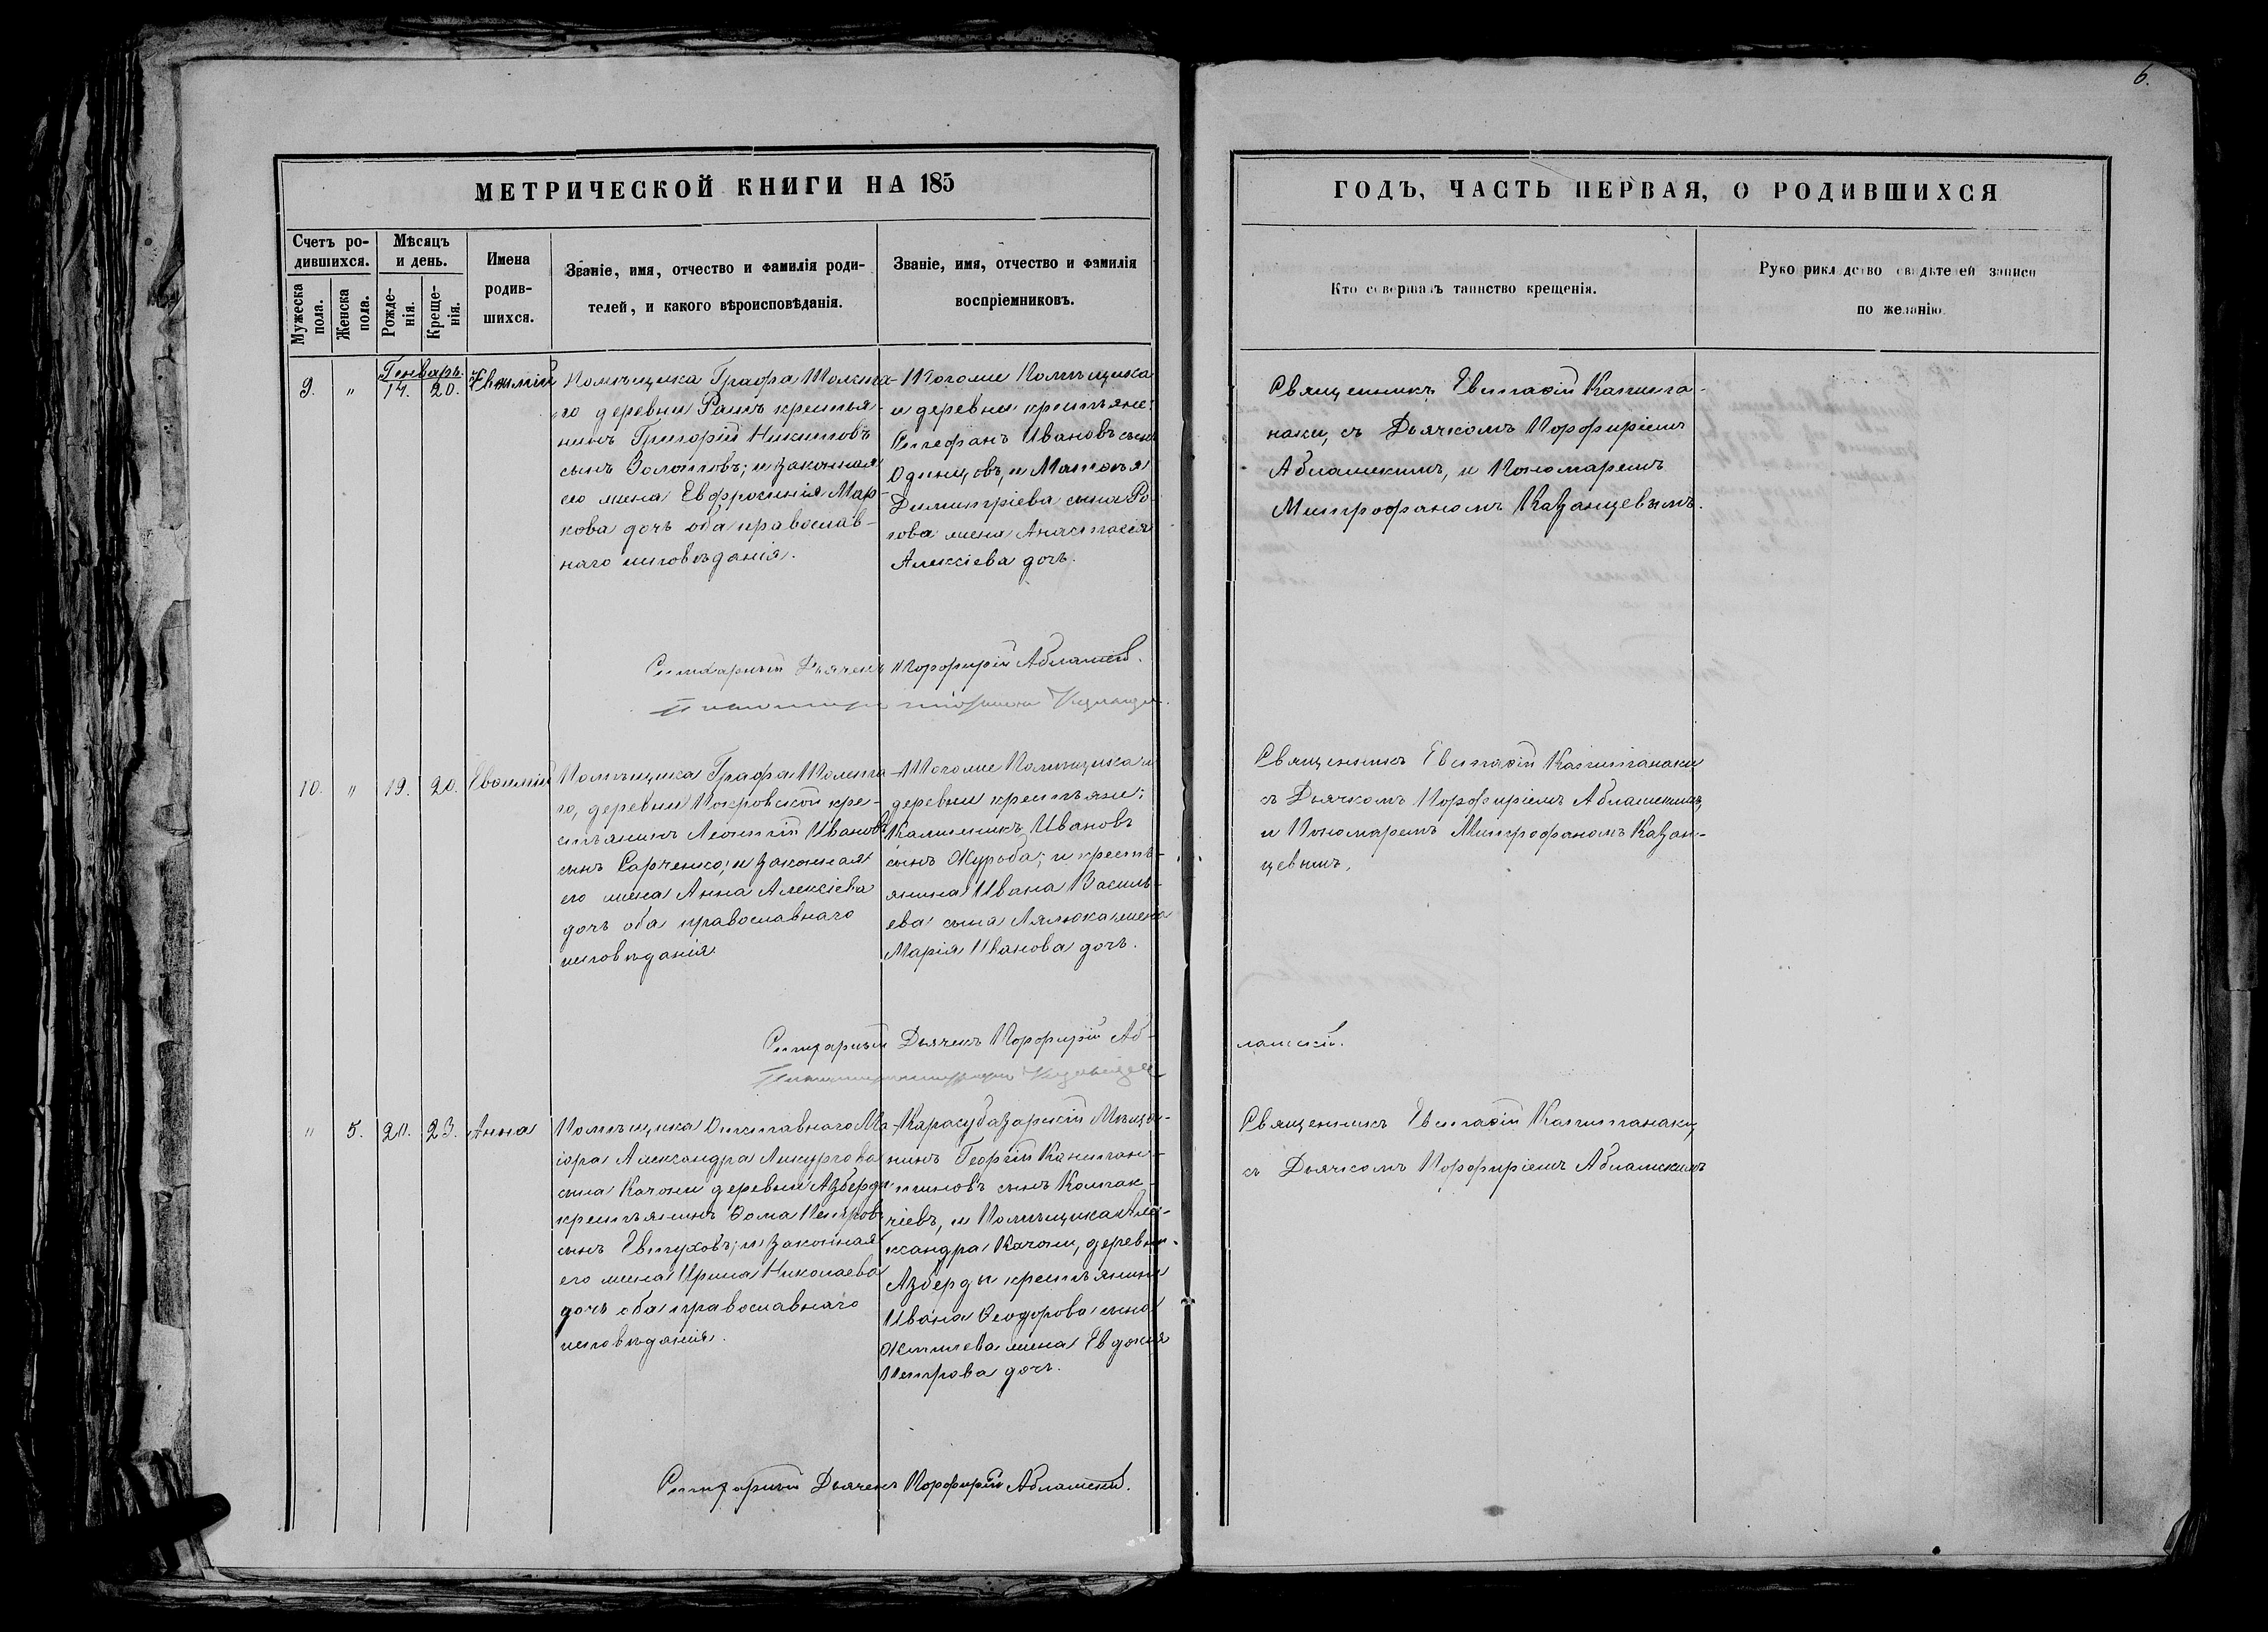 6.
МЕТРИЧЕСКОЙ КНИГИ НА 185
ГОДЪ, ЧАСТЬ ПЕРВАЯ, О РОДИВШИХСЯ
Счетъ ро-
дившихся.
Мужеска
пола.
Женска
пола.
Мѣсяцъ
и день.
Рожде-
нія.
Креще-
нія.
Имена
родив-
шихся.
Званіе, имя, отчество и фамилія роди-
телей, и какого вѣроисповѣданія.
Званіе, имя, отчество и фамилія
воспріемниковъ.
Кто совершалъ таинство крещенія.
Рукоприкладство свидѣтелей записи
по желанію.
Генварь.
9. " 14. 20. Евѳимій
Помѣщика Графа
го деревни крестья-
нинъ Григорій Никитовъ
сынъ Золотовъ; и законная
его жена Евфросинія Мар-
кова дочь оба православ-
наго исповѣданія.
Тогоже Помѣщика
и деревни крестьяне:
Стефанъ Ивановъ сынъ
Одинцовъ, и
Димитріева сына Ро-
гова жена Анастасія
Алексіева дочь.
Священникъ Евстафій Капита-
наки, съ Дьячкомъ Порфиріемъ
и Пономаремъ
Митрофаномъ Казанцевымъ.
Дьячекъ Порфирій
10. " 19. 20. Евѳимій
Помѣщика Графа
го, деревни Покровской кре-
стьянинъ Леонтій Ивановъ
сынъ Сарченко; и законная
его жена Анна Алексіева
дочь оба православнаго
исповѣданія.
Тогоже Помѣщика и
деревни крестьяне:
Калинникъ Ивановъ
сынъ Журба; и кресть-
янина Ивана Василь-
ева сына Лялюка жена
Марія Иванова дочь.
Священникъ Евстафій Капитанаки
съ Дьячкомъ Порфиріемъ
и Пономаремъ Митрофаномъ Казан-
цевымъ.
Дьячекъ Порфирій
" 5. 20. 23. Анна
Помѣщика Отставнаго Ма-
іора Александра Ликургова
сына Качони деревни Азберды
крестьянинъ Ѳома Петровъ
сынъ Евтуховъ; и законная
его жена Ирина Николаева
дочь оба православнаго
исповѣданія.
Карасубазарскій Мѣща-
нинъ Георгій Констан-
тиновъ сынъ Колпак-
чіевъ, и Помѣщика Але-
ксандра Качони, деревни
Азберды крестьянина
Ивана Ѳеодорова сына
жена Евдокія
Петрова дочь.
Священникъ Евстафій Капитанаки,
съ Дьячкомъ Порфиріемъ
Дьячекъ Порфирій